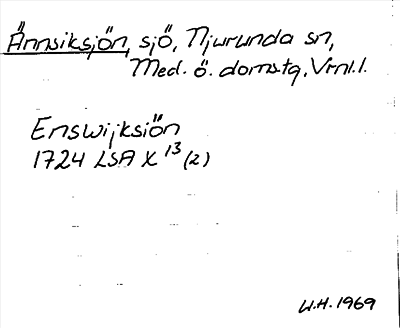 Ännsiksjön, sjö, Njurunda sn,
Med. ö. domstg, Vrnl.l.
Enswijksiön
1724 LSA X 13 (2)
W.H. 1969